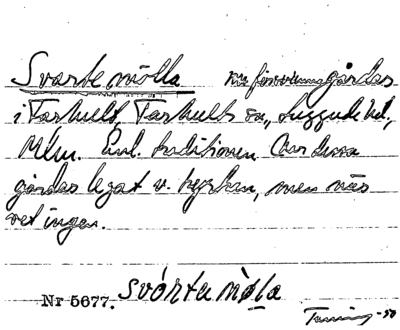 Svarte mölla nu försvunna gårdar
i Farhult, Farhults sn., Luggude hd,
Mlm. Enl. traditionen har dessa
gårdar legat v. kyrkan, men när
vet ingen.
Nr 5677. svórtu mòla